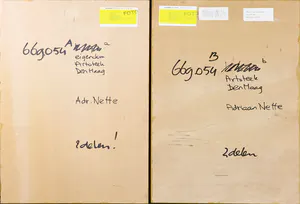 669054 A
eigendom
Artotheek
Den Haag
Adr. Nette
2 delen!
B
669054
Artoteek
Den Haag
Adriaan Nette
2 delen